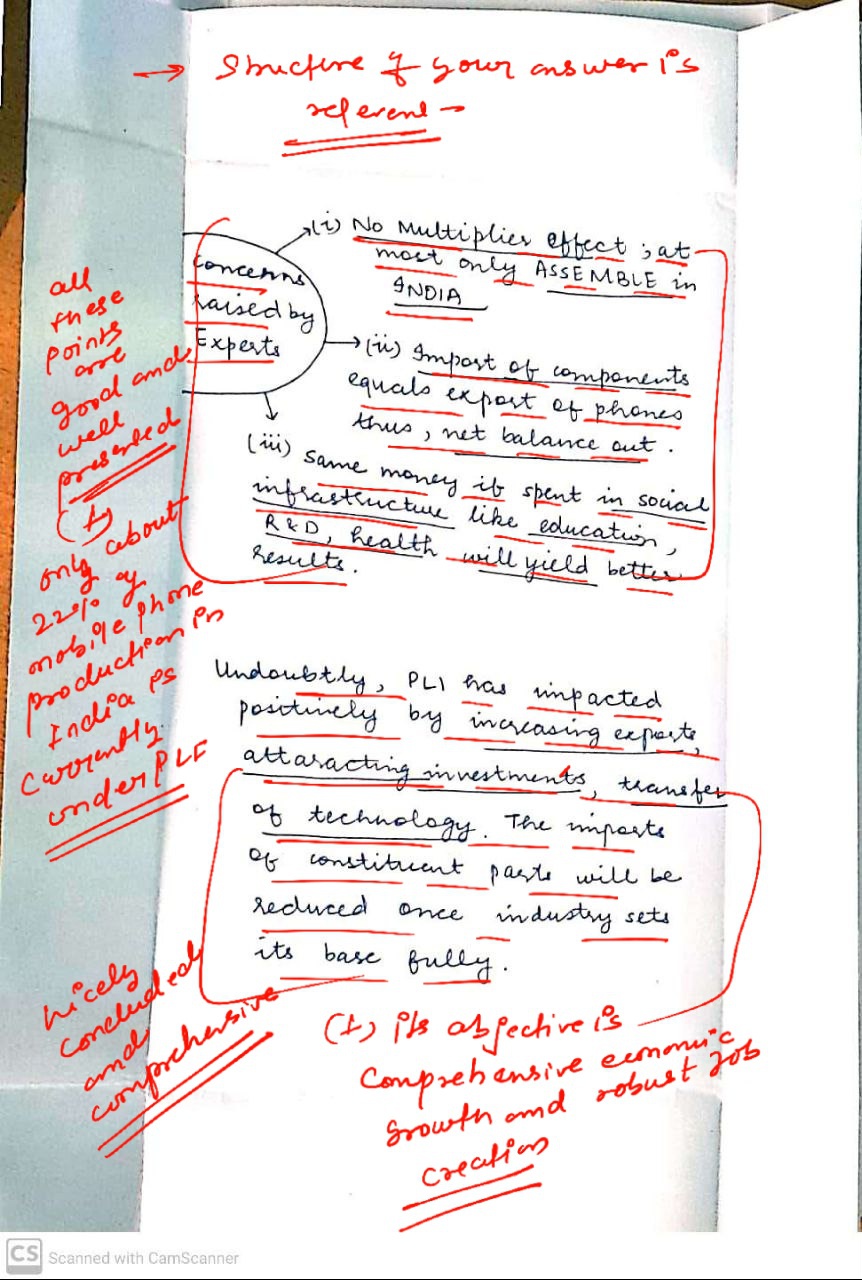 → Structure of your answer is
relevant –
Concerns
raised by
Experts
(i) No Multiplier effect ; at
most only ASSEMBLE in
INDIA
(ii) Import of components
equals export of phones
thus, net balance out.
(iii) Same money if spent in social
infrastructure like education,
R&D, health will yield better
results.
all
these
points
are
good and
well
presented
(+)
only about
22% of
mobile phone
production in
India is
currently
under PLI
Undoubtly, PLI has impacted
positively by increasing exports,
attaracting investments, transfer
of technology. The imports
of constituent parts will be
reduced once industry sets
its base fully.
nicely
concluded
and
comprehensive
(+) its objective is
comprehensive economic
growth and robust job
creation
CS Scanned with CamScanner